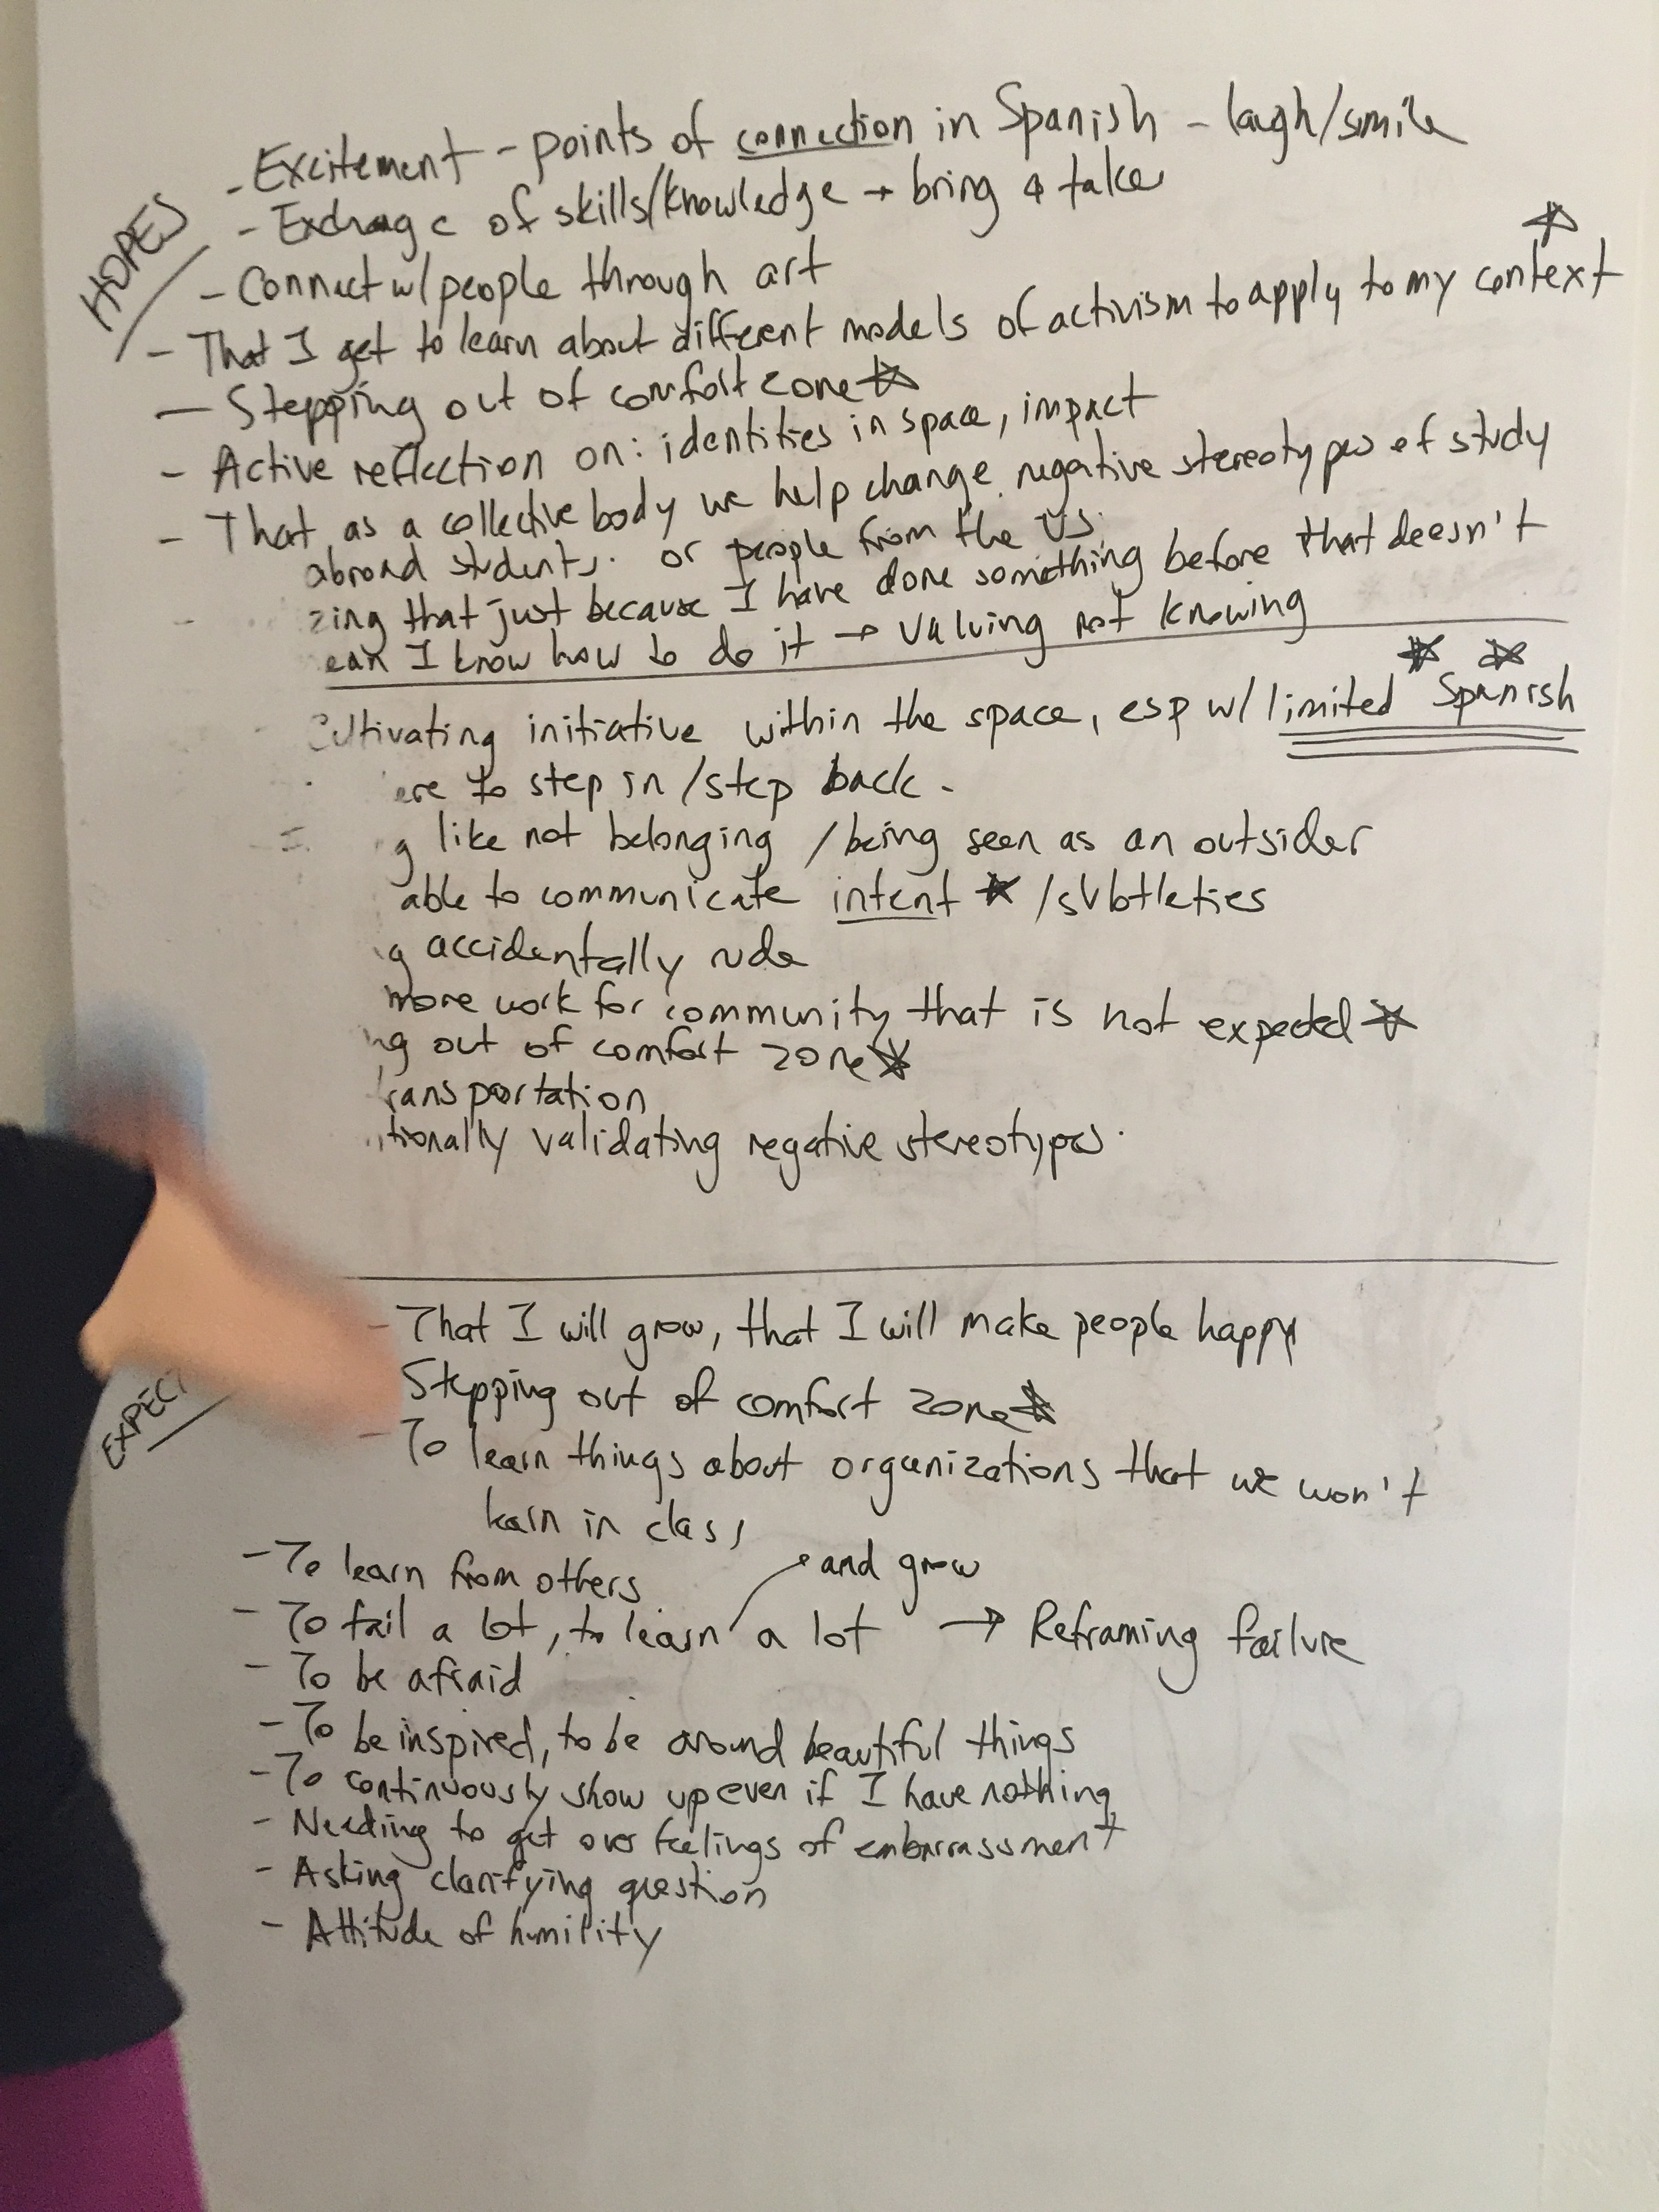 HOPES
- Excitement - points of connection in Spanish - laugh/smile
- Exchange of skills/knowledge → bring & take
- Connect w/ people through art
- That I get to learn about different models of activism to apply to my context
- Stepping out of comfort zone
- Active reflection on: identities in space, impact
- That as a collective body we help change negative stereotypes of study
abroad students. or people from the US.
that just because I have done something before that doesn't
I know how to do it → valuing not knowing
initiative within the space, esp w/ limited Spanish
to step in/step back.
like not belonging /being seen as an outsider
able to communicate intent /subtleties
accidentally rude
more work for community that is not expected
out of comfort zone
validating negative stereotypes.
- That I will grow, that I will make people happy
Stepping out of comfort zone
EXPECT
- To learn things about organizations that we won't
learn in class
- To learn from others
and grow
- To fail a lot, to learn a lot → Reframing failure
- To be afraid
- To be inspired, to be around beautiful things
- To continuously show up even if I have nothing
- Needing to get over feelings of embarrassment
- Asking clarifying question
- Attitude of humility